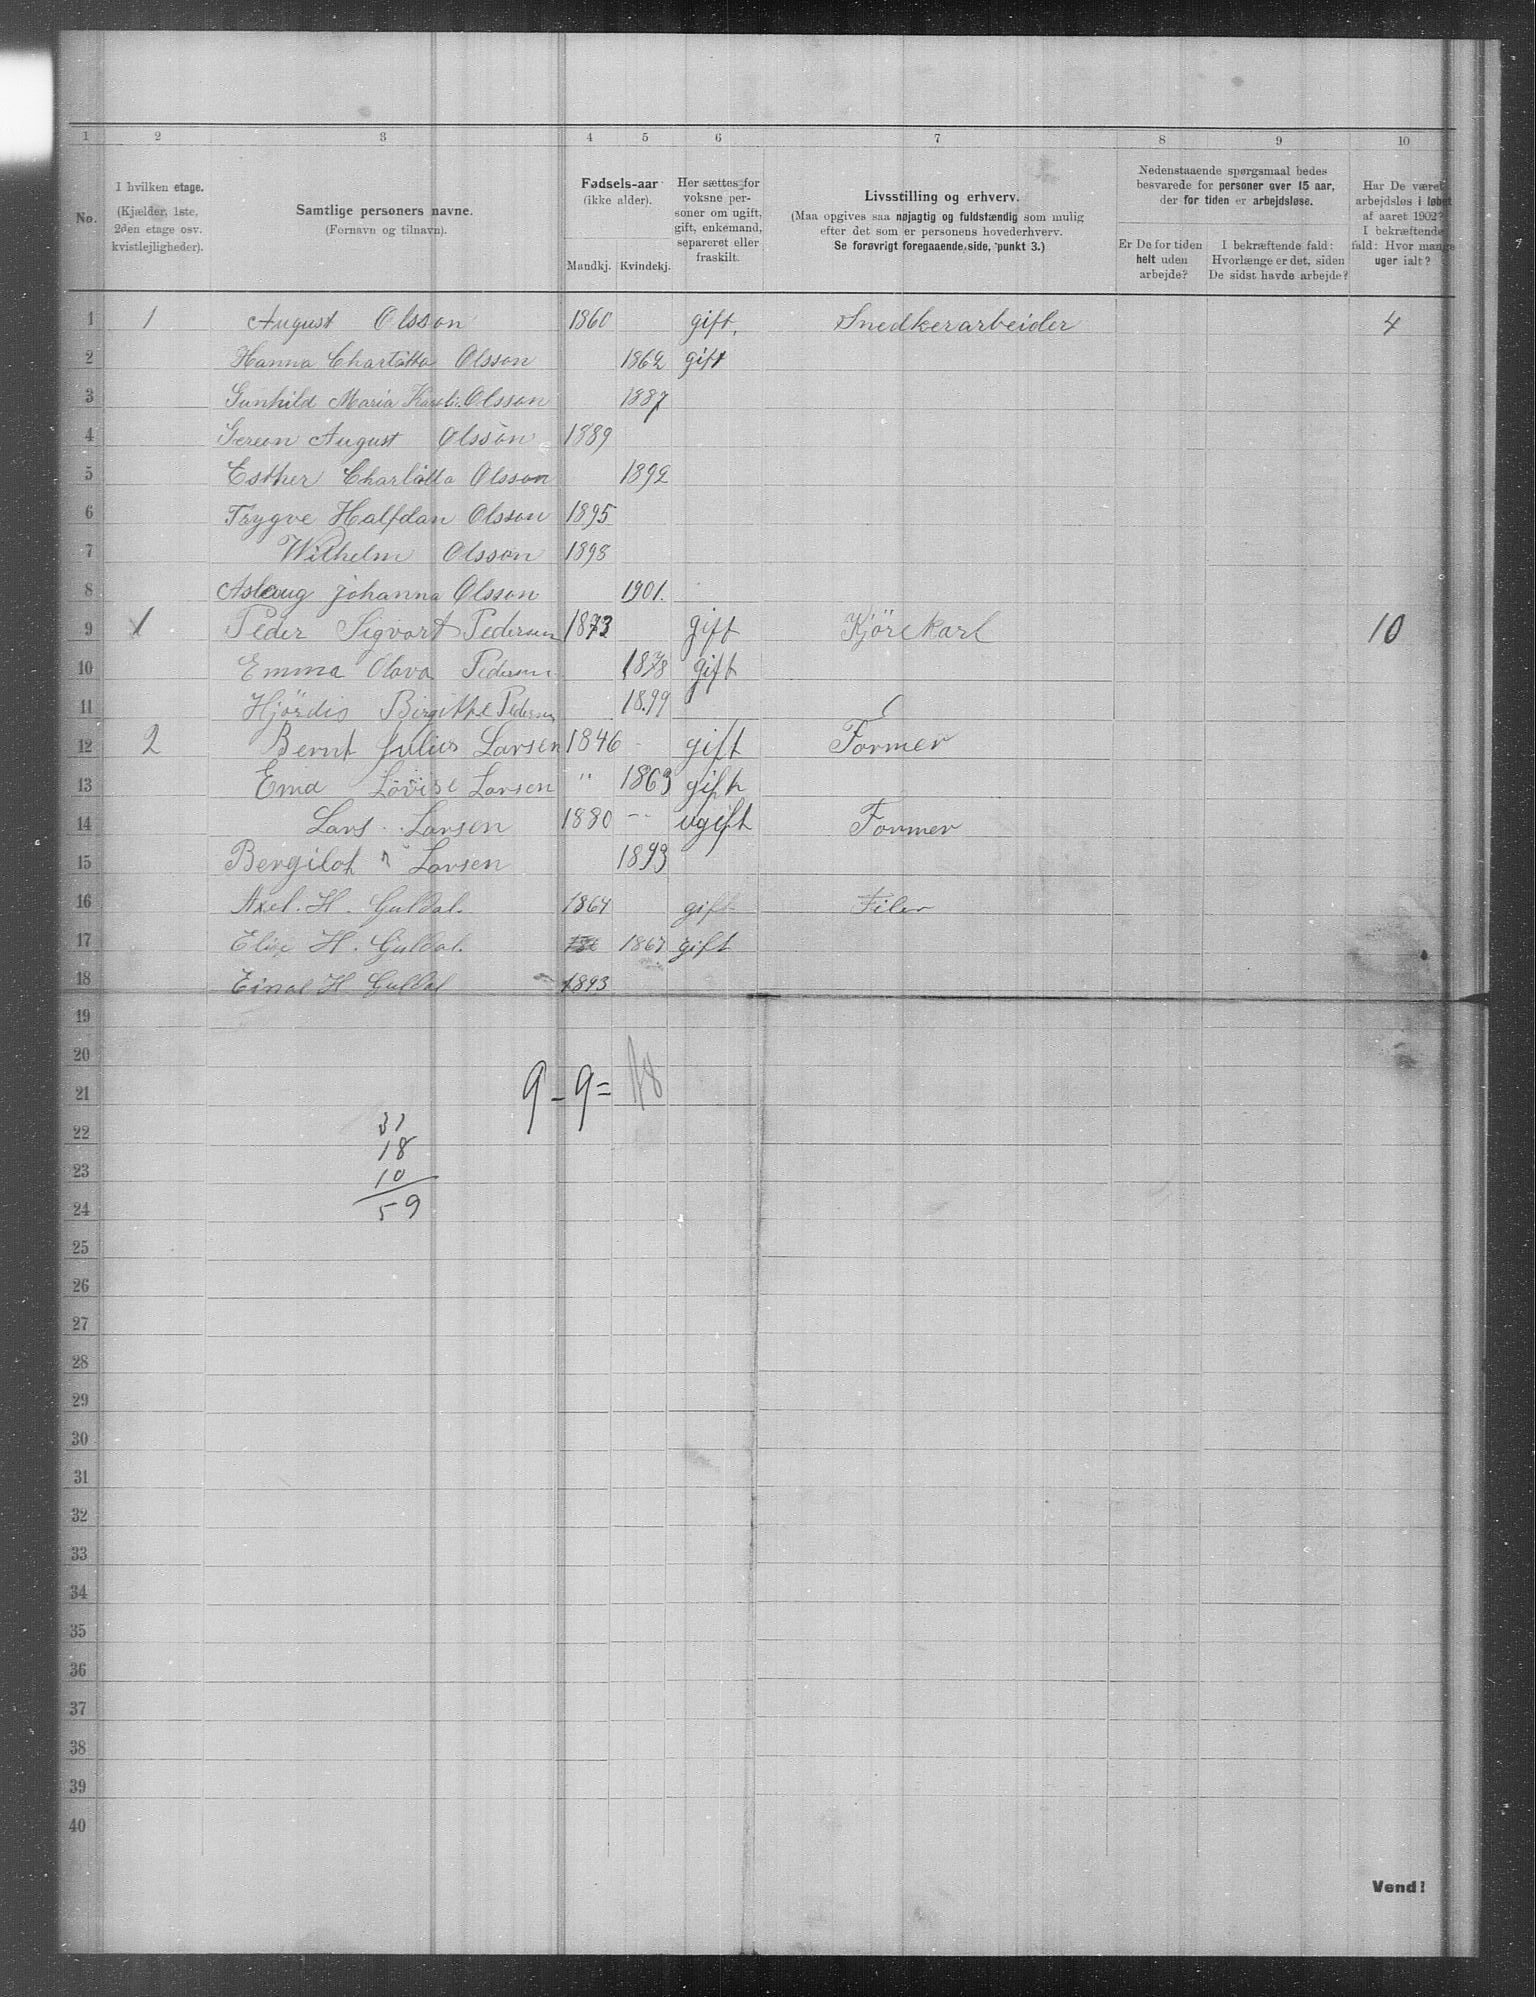 1 2 3 4 5 6 7 8 9 10
No.
I hvilken etage. (Kjælder, 1ste, 2den etage osv. kvistlejligheder).
Samtlige personers navne. (Fornavn og tilnavn).
Fødsels-aar (ikke alder). Mandkj. Kvindekj.
Her sættes for voksne personer om ugift, gift, enkemand, separeret eller fraskilt.
Livsstilling og erhverv. (Maa opgives saa nøjagtig og fuldstændig som mulig efter det som er personens hovederhverv. Se forøvrigt foregaaende side, punkt 3.)
Nedenstaaende spørgsmaal bedes besvarede for personer over 15 aar, der for tiden er arbejdsløse.
Er De for tiden helt uden arbejde?
I bekræftende fald: Hvorlænge er det, siden De sidst havde arbejde?
Har De været arbejdsløs i løbet af aaret 1902? I bekræftende fald: Hvor mange uger ialt?
1 1 August Olsson 1860 gift. Snedkerarbeider 4
2 Hanna Charlotta Olsson 1862 gift
3 Gunhild Maria Olsson 1887
4 August Olsson 1889
5 Esther Charlotta Olsson 1892
6 Trygve Halfdan Olsson 1895
7 Wilhelm Olsson 1898
8 Aslaug Johanna Olsson 1901.
9 1 Peder Sigvart Pedersen 1873 gift Kjörekarl 10
10 Emma Olava Pedersen 1878 gift
11 Hjördis Birgitte Pedersen 1899
12 2 Bernt Julius Larsen 1846 gift Former
13 Lovise Larsen " 1863 gift
14 Lars Larsen 1880 -- ugift Former
15 Bergilot Larsen 1893
16 Axel. H. Guldal. 1864 gift Filer
17 Elise H. Guldal. 1867 gift
18 Einar H Guldal 1893
19
20
21 9 - 9 = 18
22 31
23 18
10
24 59
25
26
27
28
29
30
31
32
33
34
35
36
37
38
39
40
Vend!